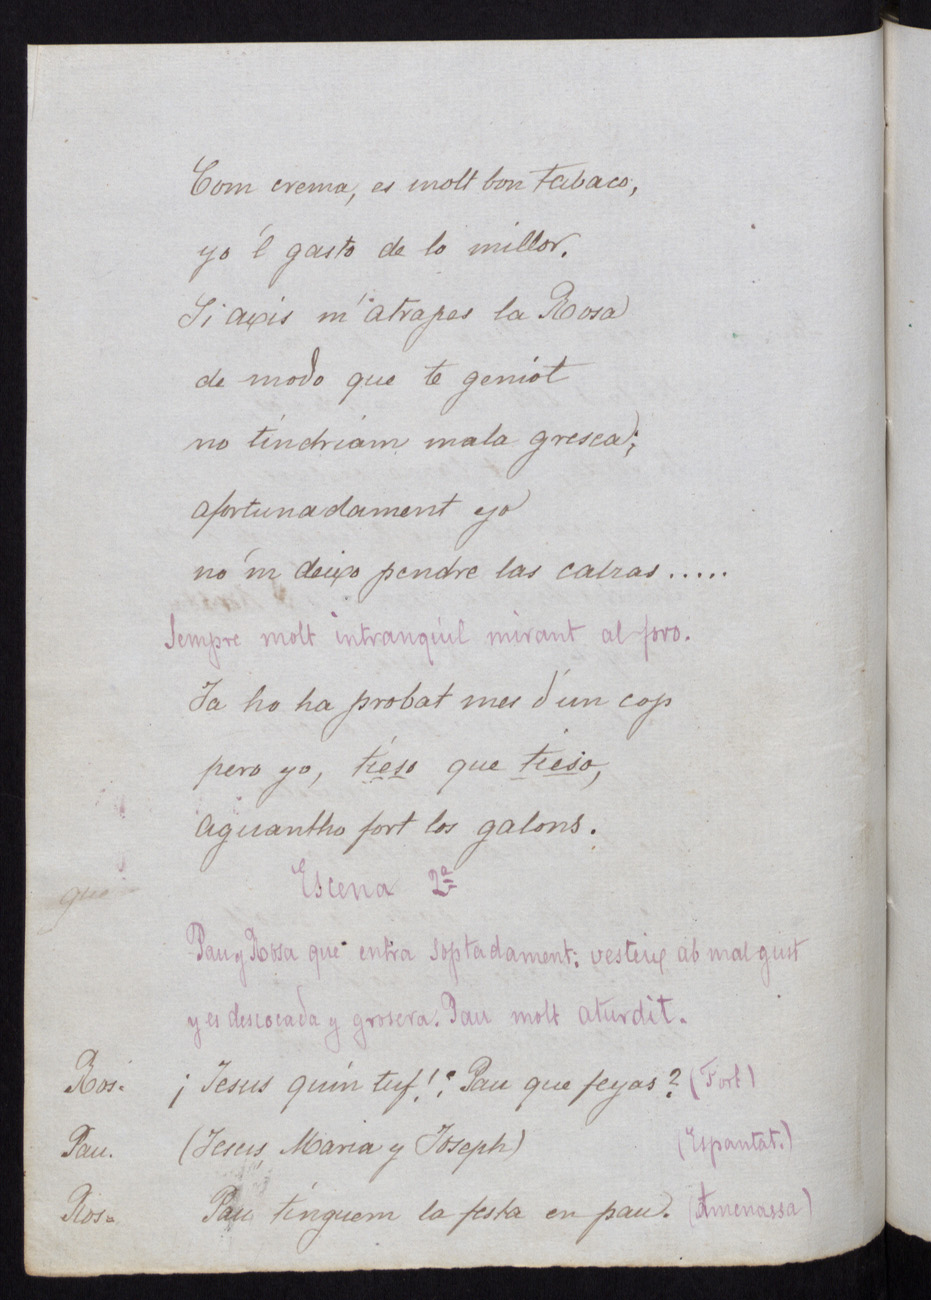 Com crema, es molt bon tabaco,
yo 'l gasto de lo millor.
Si axis m'atrapes la Rosa
de modo que te geniot
no tindriam mala gresca;
afortunadament yo
no 'm deixo pendre las calzas.....
Sempre molt intranquil mirant al foro.
Ja ho ha probat mes d'un cop
pero yo, tieso que tieso,
aguantho fort los galons.
Escena 2ª
que
Pau y Rosa que entra soptadament: vesteix ab mal gust
y es descocada y grosera. Pau molt aturdit.
Ros. ¡Jesus quin tuf!¿Pau que feyas? (Fort)
Pau. (Jesus, Maria y Joseph) (Espantat.)
Ros. Pau tinguem la festa en pau. (Amenassa)